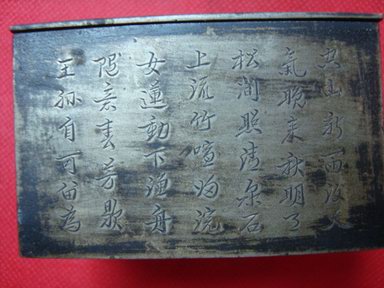 空山新雨後天
氣晚來秋明月
松間照清泉石
上流竹喧歸浣
女蓮動下漁舟
隨意春芳歇
王孫自可留為